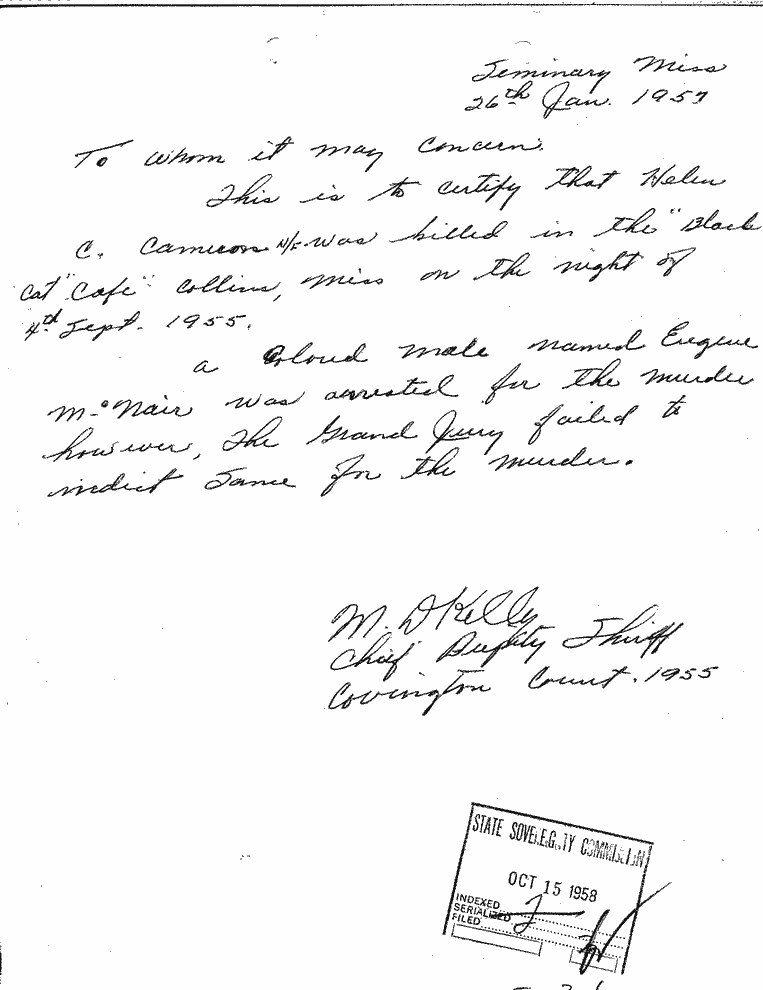 Seminary Miss
26th Jan. 1957
To whom it may concern.
This is to certify that Helen
C. Cameron N/F was killed in the "Black
Cat" Cafe" Collins, Miss on the night of
4th Sept. 1955.
a Colored male named Eugene
McNair was arrested for the murder
however, the Grand Jury failed to
indict same for the murder.
M. D Kelly
Chief Deputy Shriff
Covington Count. 1955
STATE SOVEREIGNTY COMMISSION
OCT 15 1958
INDEXED
SERIALIZED
FILED